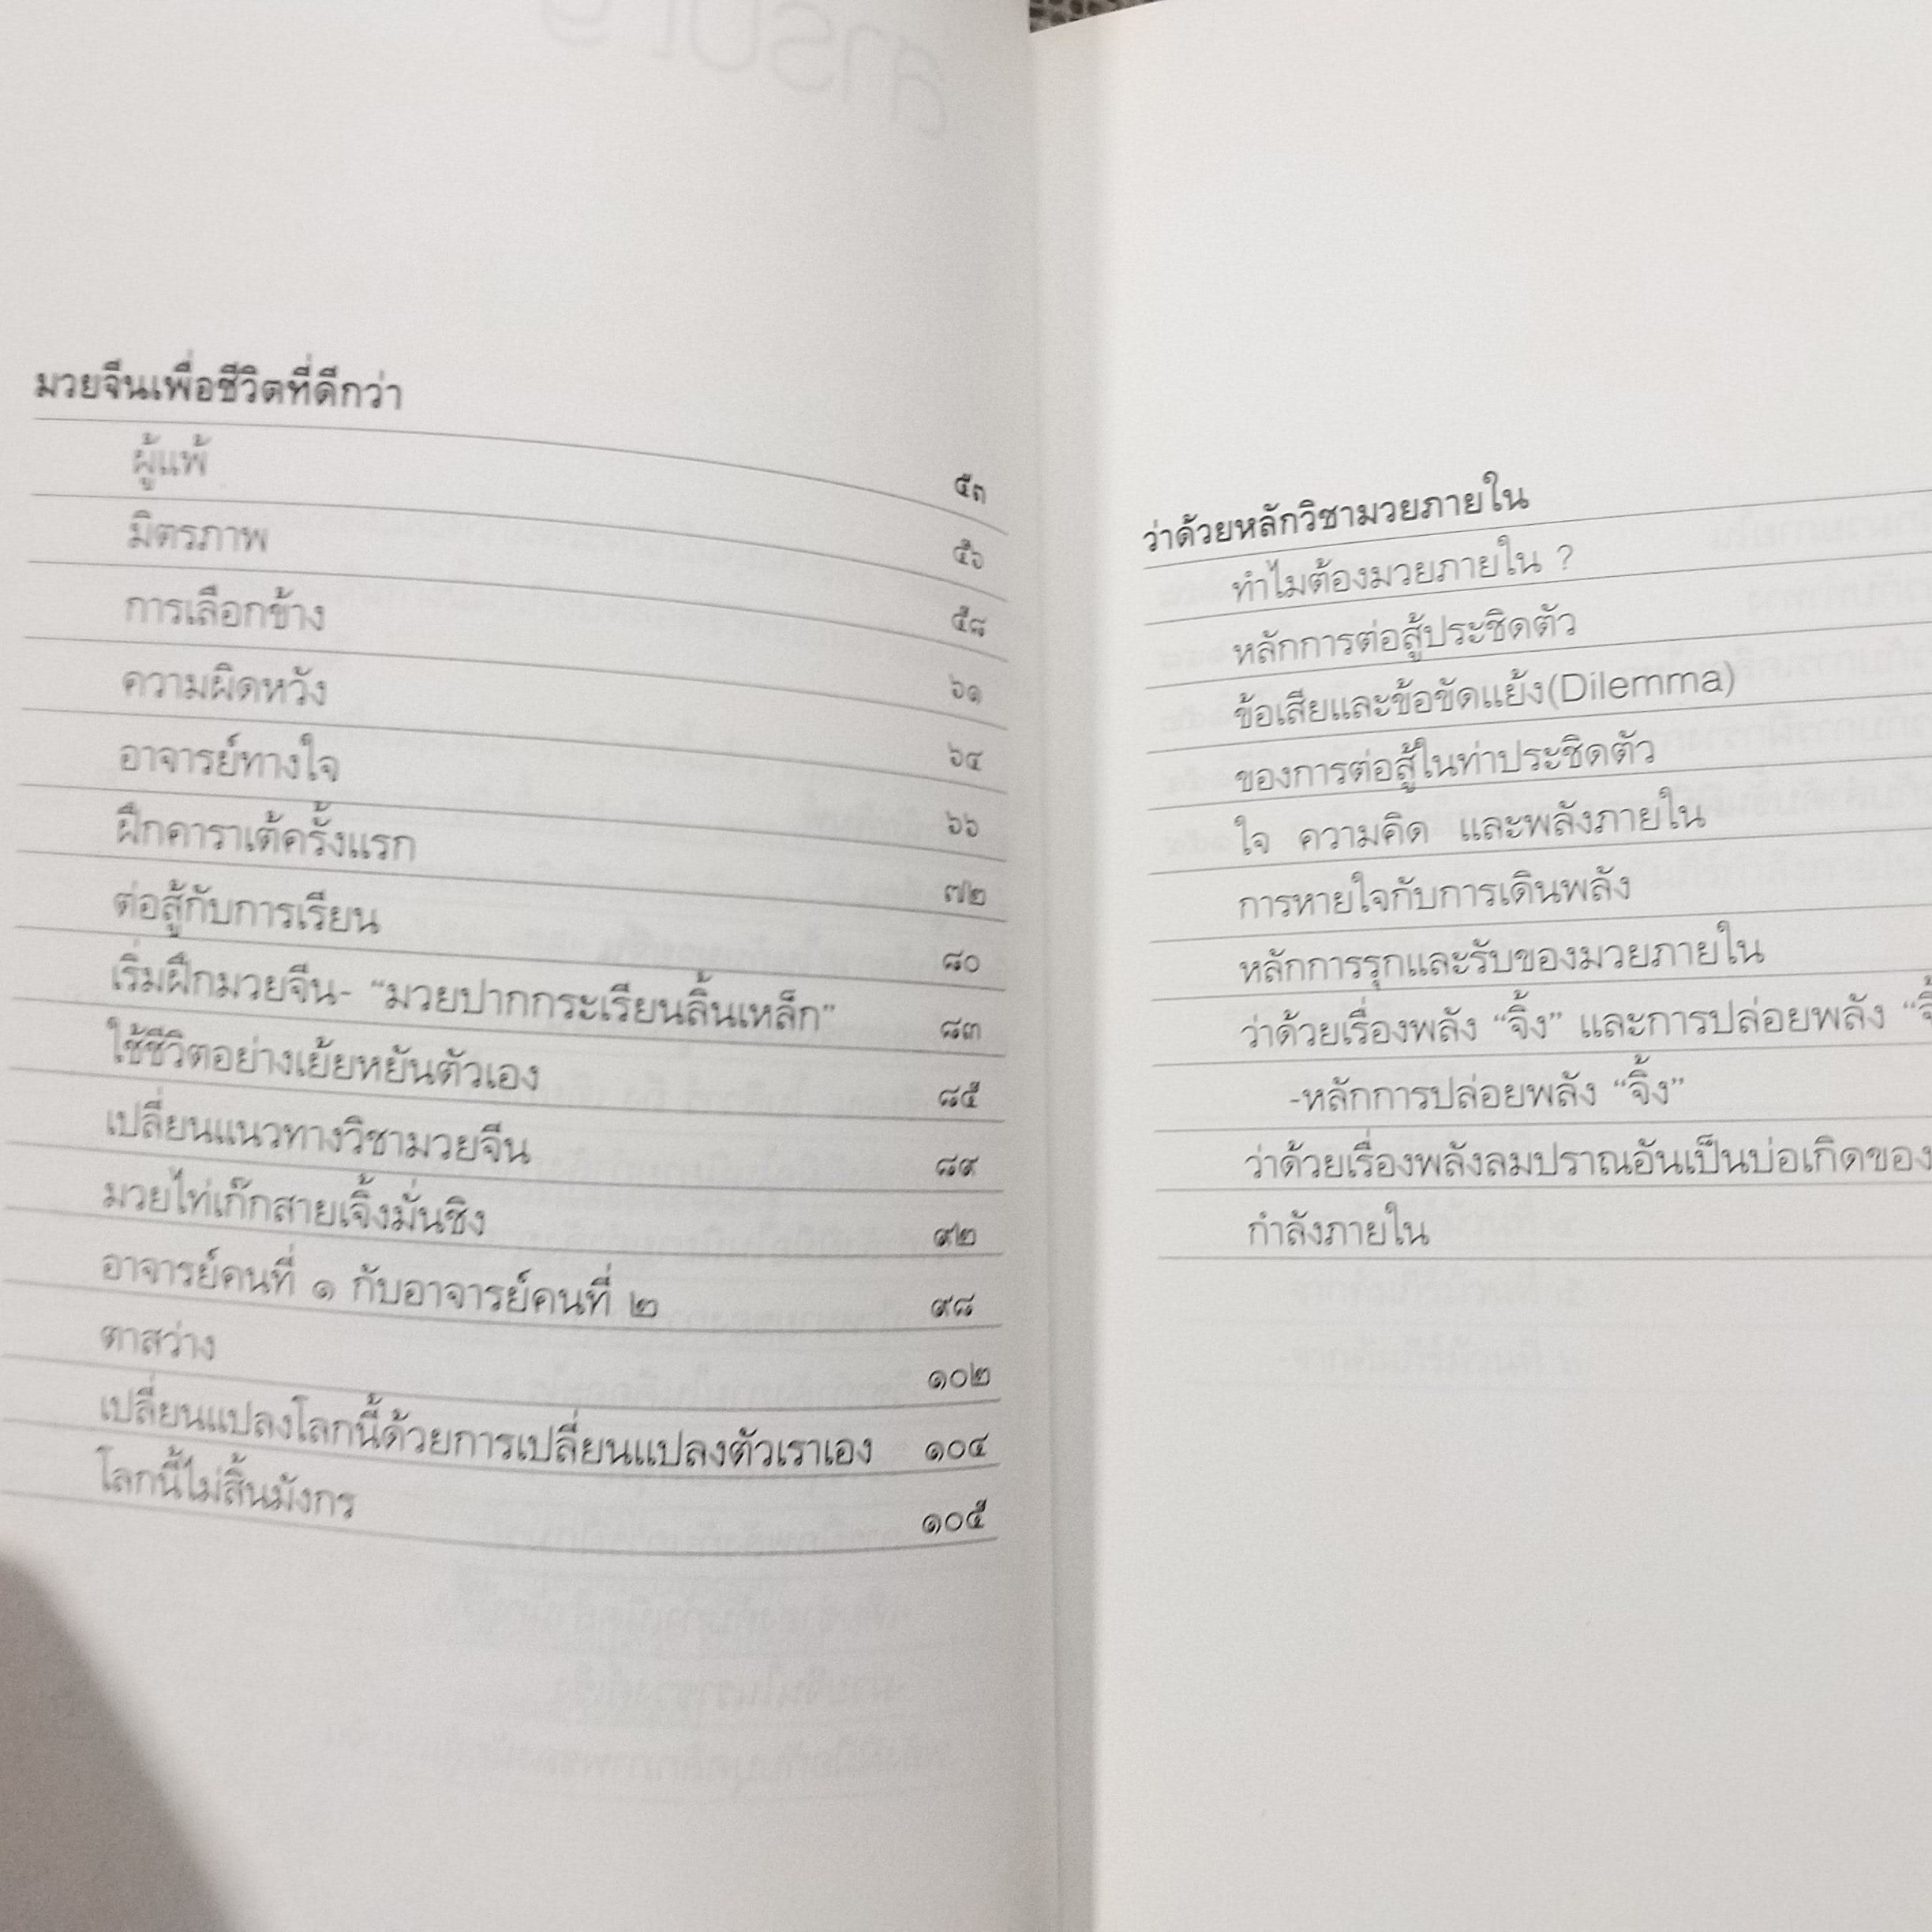 มวยจีนเพื่อชีวิตที่ดีกว่า
ผู้แพ้ ๕๓
มิตรภาพ ๕๖
การเลือกข้าง ๕๘
ความผิดหวัง ๖๑
อาจารย์ทางใจ ๖๔
ฝึกคาราเต้ครั้งแรก ๖๖
ต่อสู้กับการเรียน ๗๒
เริ่มฝึกมวยจีน- “มวยปากกระเรียนลิ้นเหล็ก” ๘๐
ใช้ชีวิตอย่างเย้ยหยันตัวเอง ๘๓
เปลี่ยนแนวทางวิชามวยจีน ๘๕
มวยไท่เก๊กสายเจิ้งมั่นชิง ๘๙
อาจารย์คนที่ ๑ กับอาจารย์คนที่ ๒ ๙๒
ตาสว่าง ๙๘
เปลี่ยนแปลงโลกนี้ด้วยการเปลี่ยนแปลงตัวเราเอง ๑๐๒
โลกนี้ไม่สิ้นมังกร ๑๐๔
๑๐๕
ว่าด้วยหลักวิชามวยภายใน
ทำไมต้องมวยภายใน ?
หลักการต่อสู้ประชิดตัว
ข้อเสียและข้อขัดแย้ง(Dilemma)
ของการต่อสู้ในท่าประชิดตัว
ใจ ความคิด และพลังภายใน
การหายใจกับการเดินพลัง
หลักการรุกและรับของมวยภายใน
ว่าด้วยเรื่องพลัง “จิ้ง” และการปล่อยพลัง
-หลักการปล่อยพลัง “จิ้ง”
ว่าด้วยเรื่องพลังลมปราณอันเป็นบ่อเกิดของ
กำลังภายใน